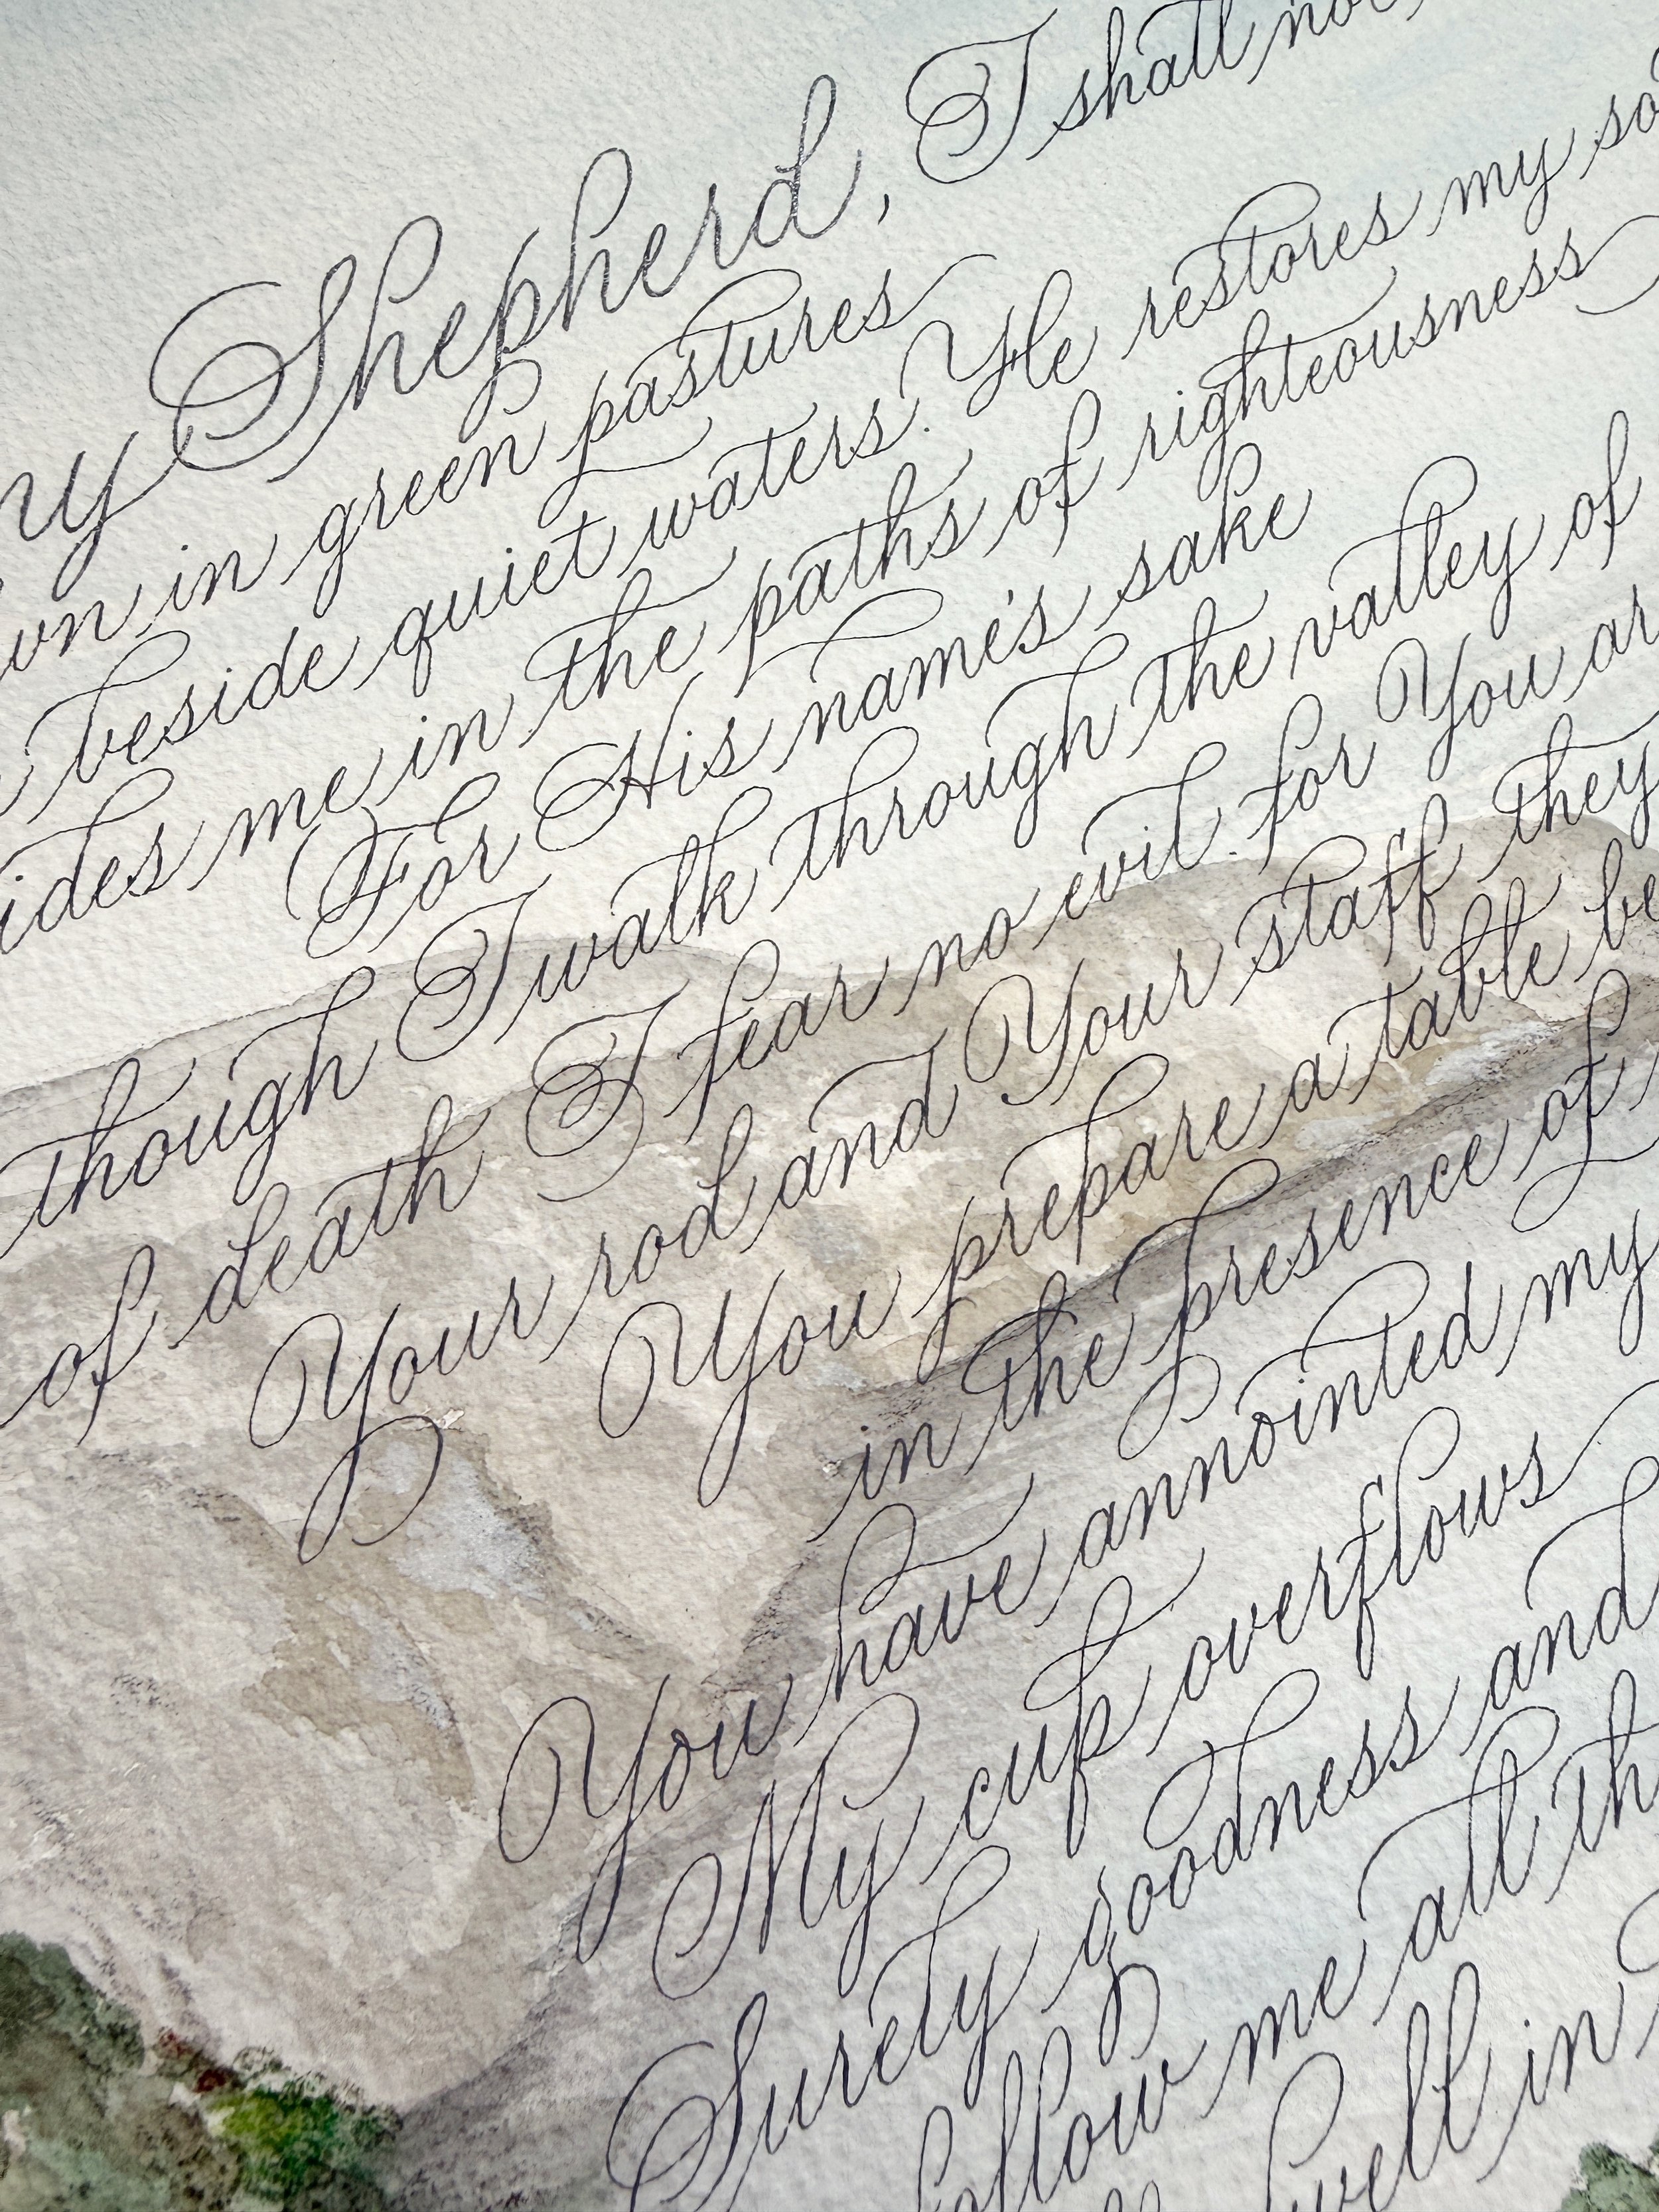 y Shepherd, I shall no
wn in green pastures
beside quiet waters. He restores my so
ides me in the paths of righteousness
For His name's sake
though I walk through the valley of
of death I fear no evil. for You ar
Your rod and Your staff they
You prepare a table be
in the presence of
You have annointed my
My cup overflows
Surely goodness and
follow me all th
well in